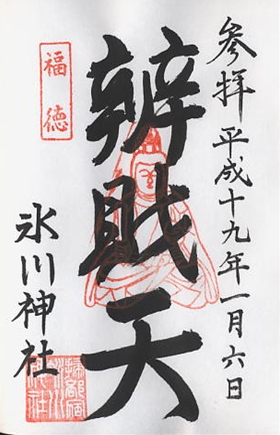 参拝 平成十九年一月六日
辨財天
福徳
氷川神社